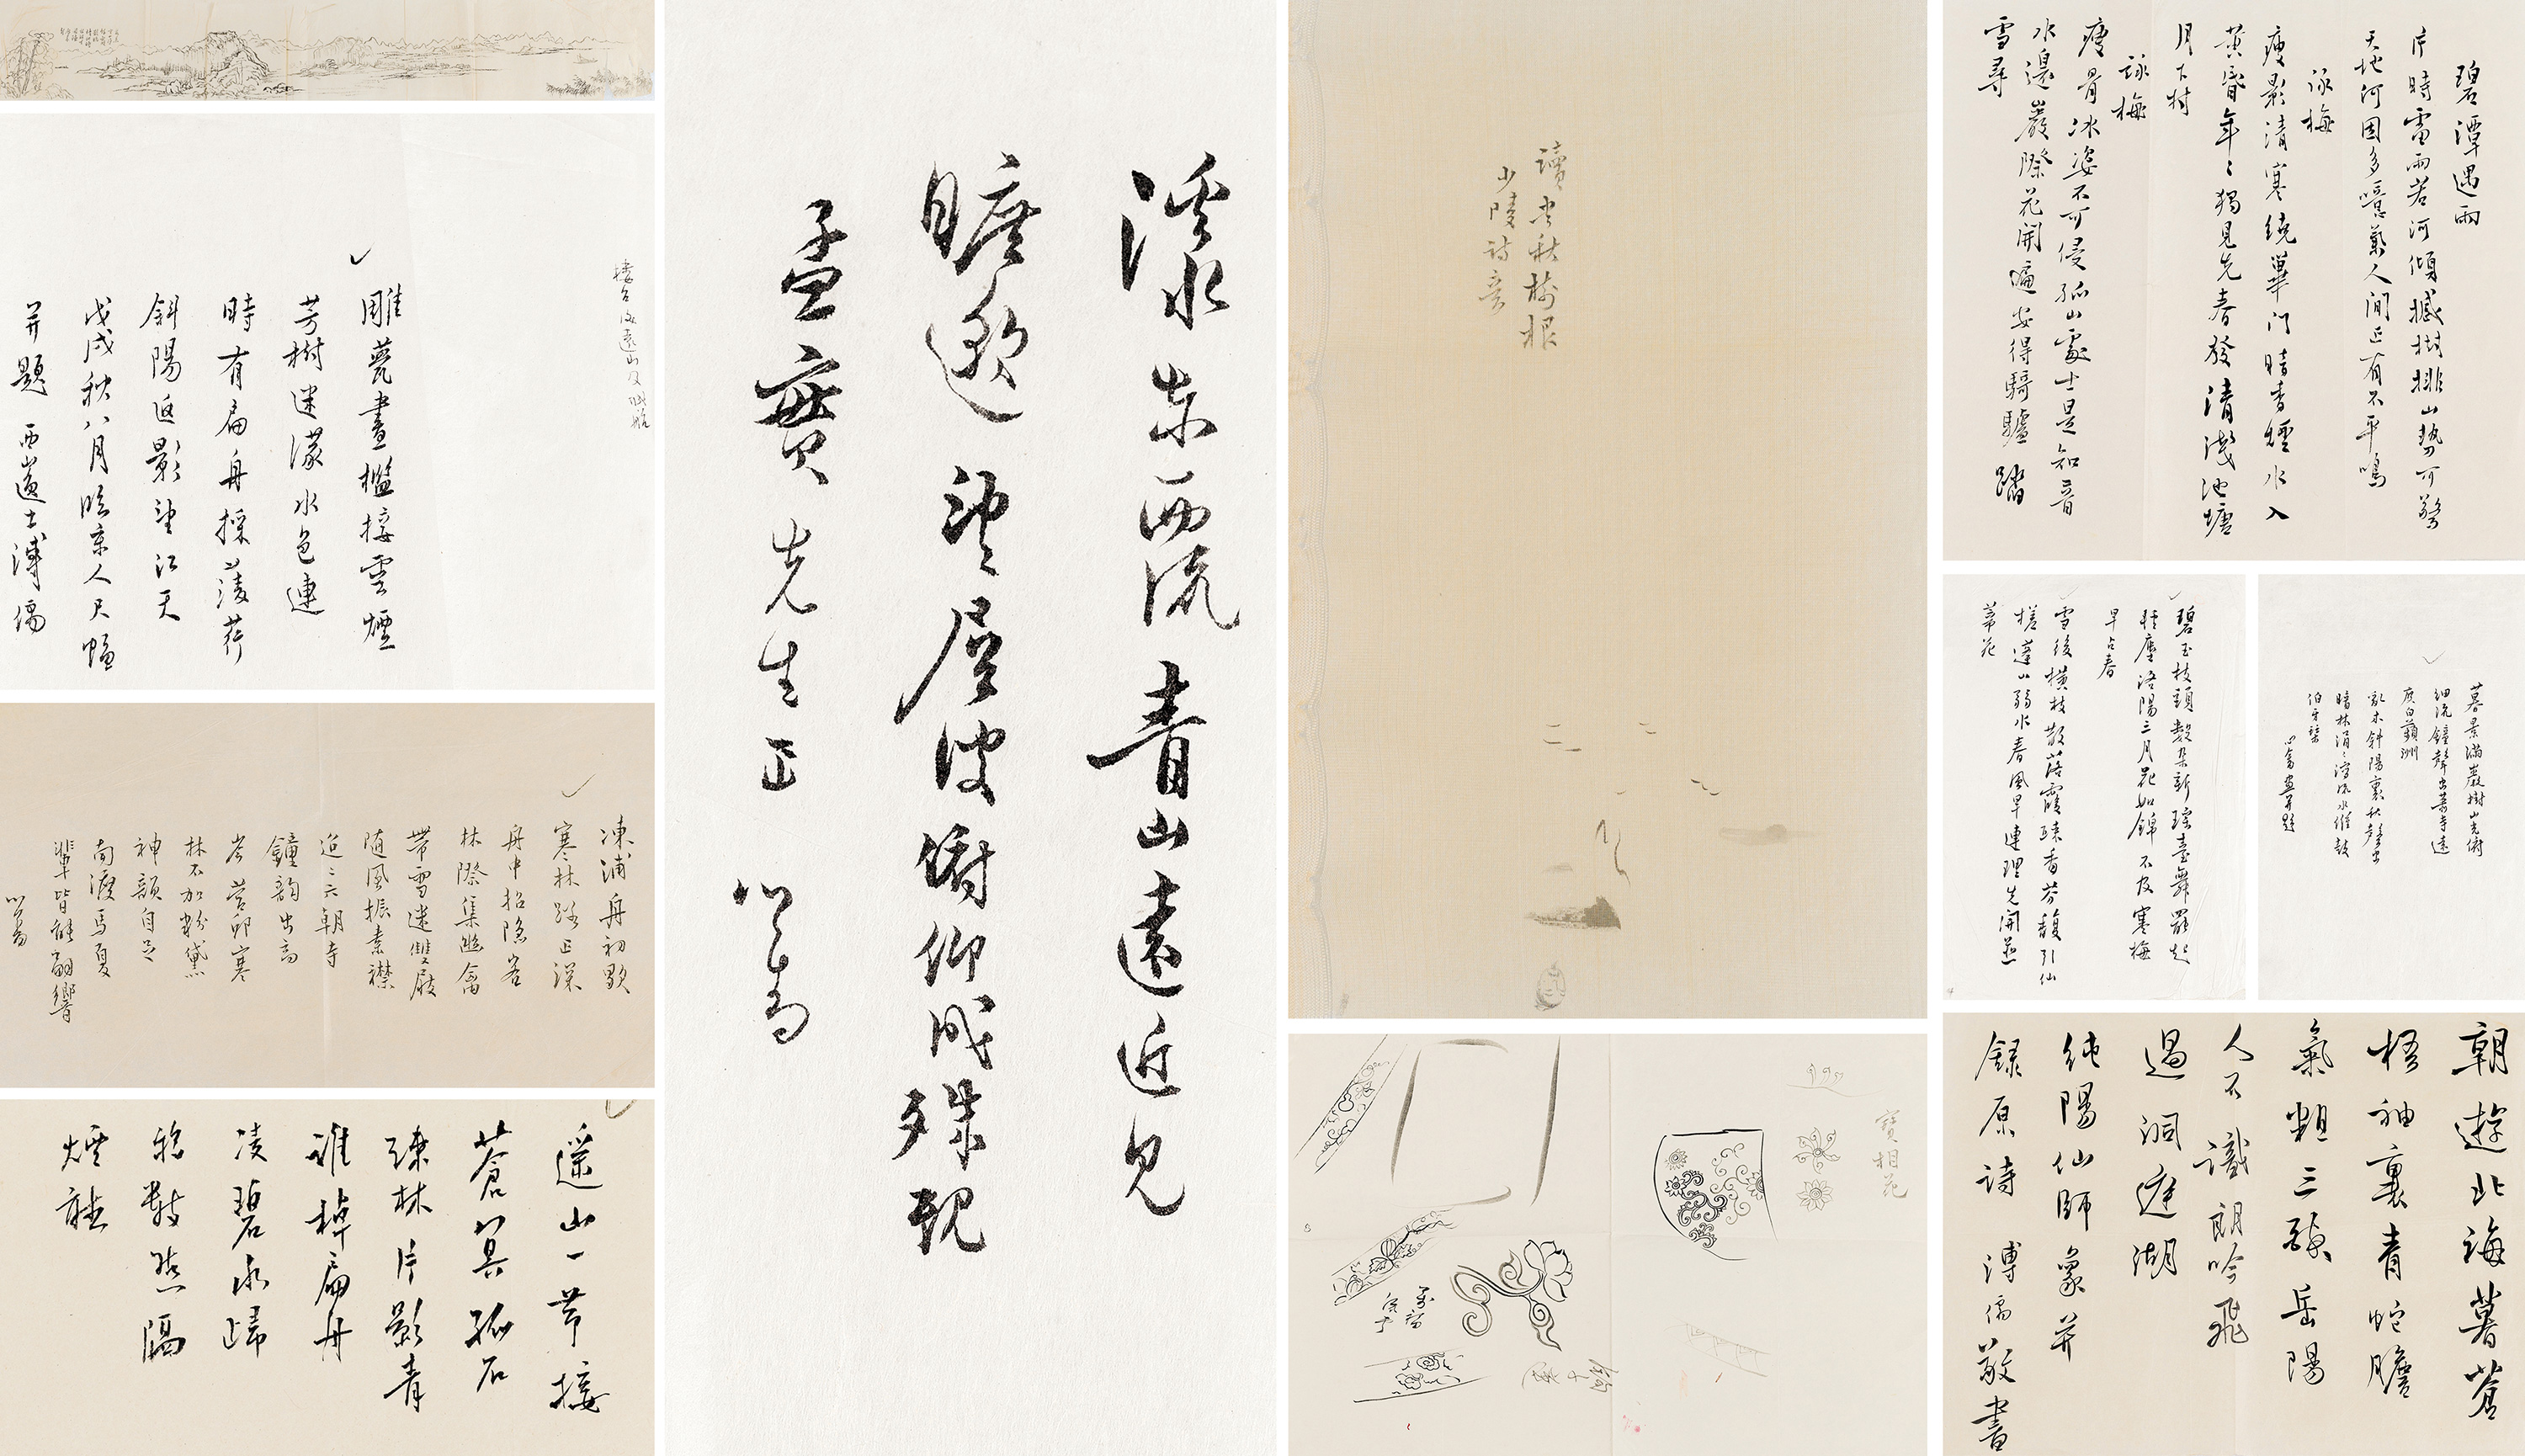 雕甍畫檻接雲煙
芳樹迷濛水色連
時有扁舟採菱荇
斜陽返影望江天
戊戌秋八月臨宋人尺幅
并題 西山逸士溥儒
凍浦舟初歇
寒林路正深
舟中招隱客
林際集幽禽
帶雪迷雙屐
隨風振素襟
迢迢六朝寺
鐘韵出高岑
營邱寒
林不加粉黛
神韻自足
南渡馬夏
輩皆能嗣響
心畬
遥山一帶接
蒼冥孤石
疎林片影青
誰棹扁舟
凌碧水歸
鴉數點隔
煙聽
溪水東西流青山遠近見
曠邈望層波俯仰成殊觀
孟實先生正 心畬
讀書秋樹根
少陵詩意
寶相花
碧潭遇雨
片時雷雨若河傾撼樹排山勢可驚
天地何因多噫氣人間正有不平鳴
詠梅
瘦影清寒繞蓽門暗香煙水入
黃昏年年獨見先春發清淺池塘
月下村
詠梅
瘦骨冰姿不可侵孤山處士是知音
水邊巖際花開遍安得騎驢踏
雪尋
碧玉枝頭數朵新瑤臺舞罷起
輕塵洛陽三月花如錦不及寒梅
早占春
雪後橫枝散落霞疎香芬馥引仙
槎蓬山弱水春風早連理先開並
蒂花
暮景滿巖樹山光俯
細流鐘聲出蕭寺遠
度白蘋洲
亂木斜陽裏秋聲出
暗林涓涓流水作鼓
伯牙琴
心畬畫并題
朝遊北海暮蒼
梧袖裏青蛇膽
氣粗三醉岳陽
人不識朗吟飛
過洞庭湖
純陽仙師象并
錄原詩 溥儒敬書